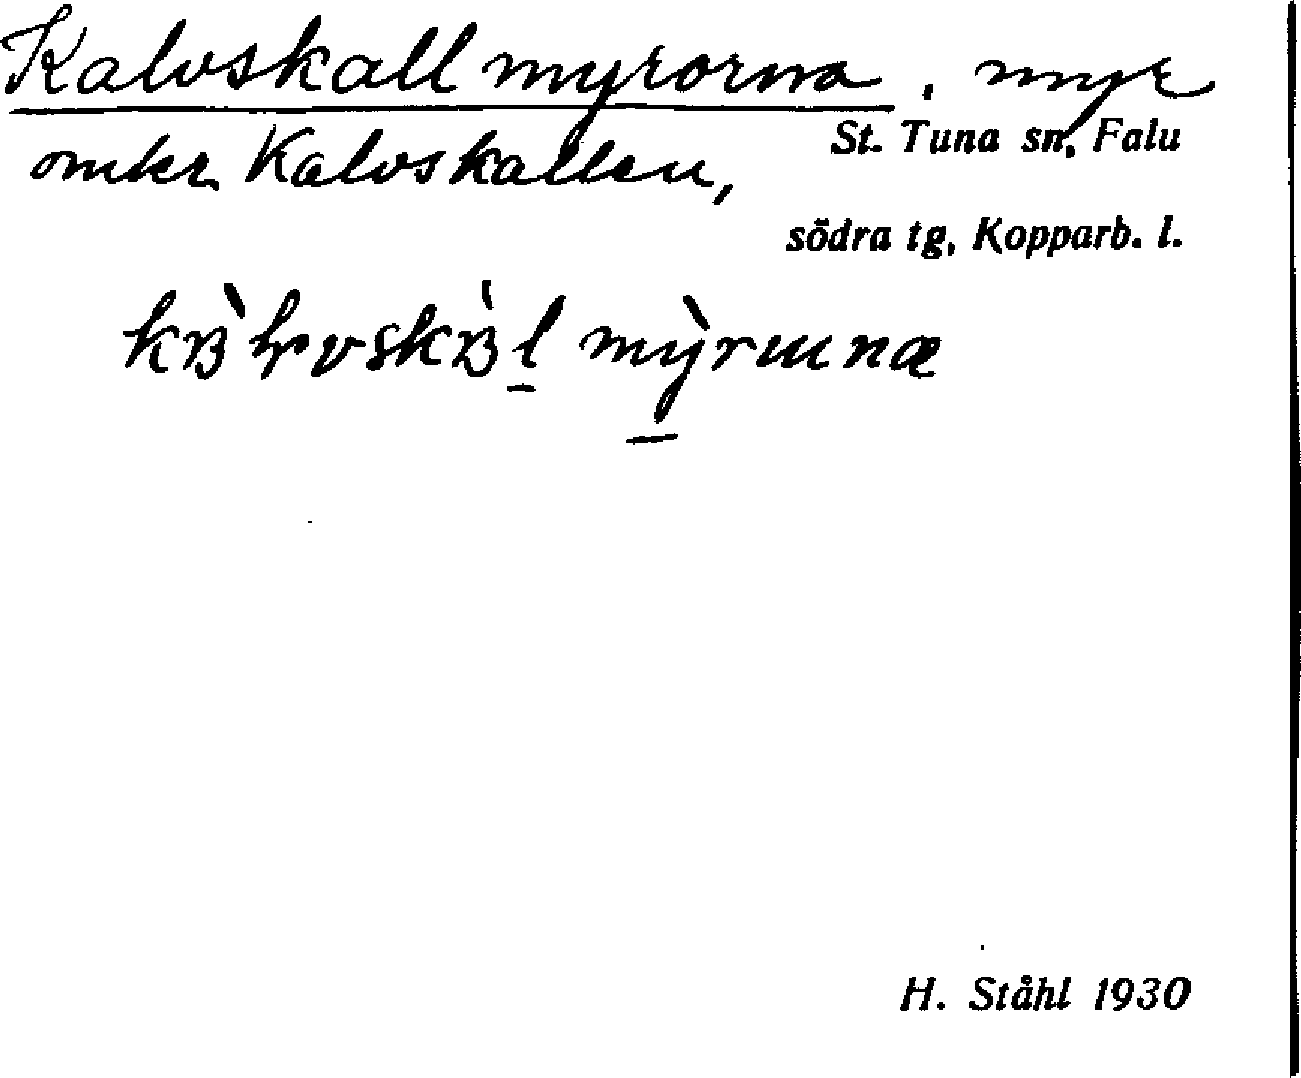 Kalvskallmyrorna, myr
St. Tuna sn, Falu
omkr. Kalvskallen,
södra tg, Kopparb. l.
H. Ståhl 1930